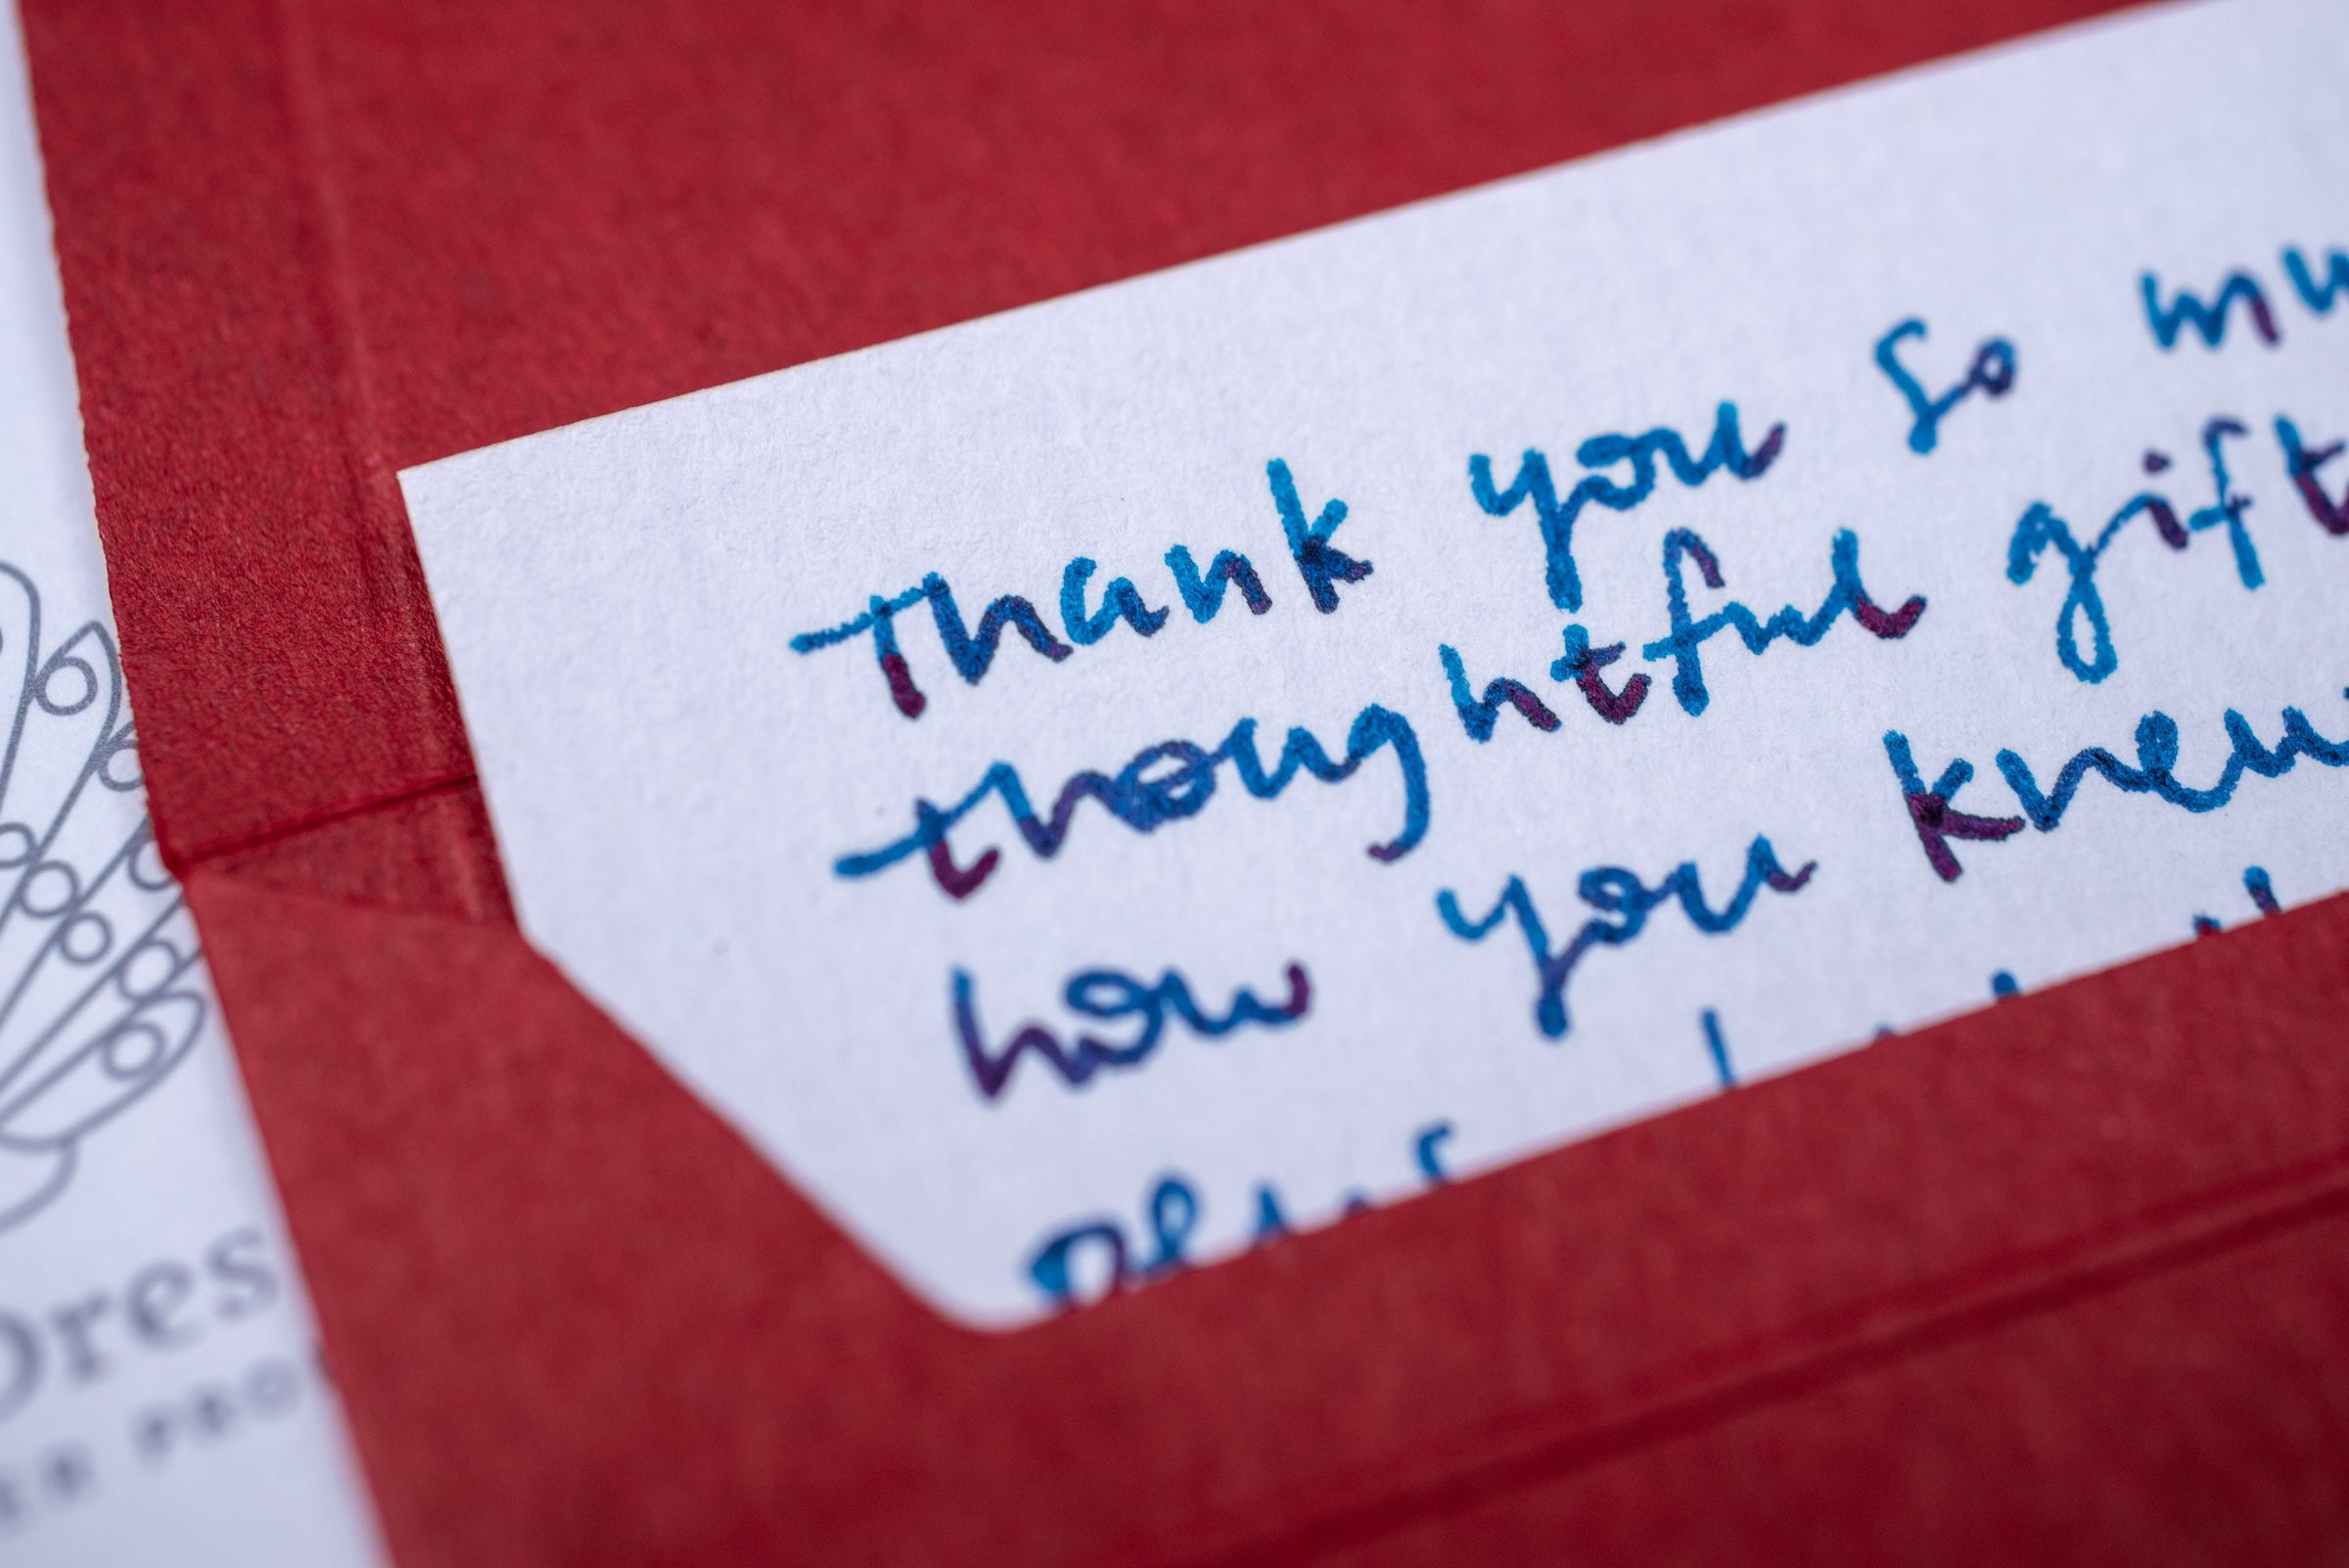 Thank you so mu
thoughtful gift
how you knew
ores